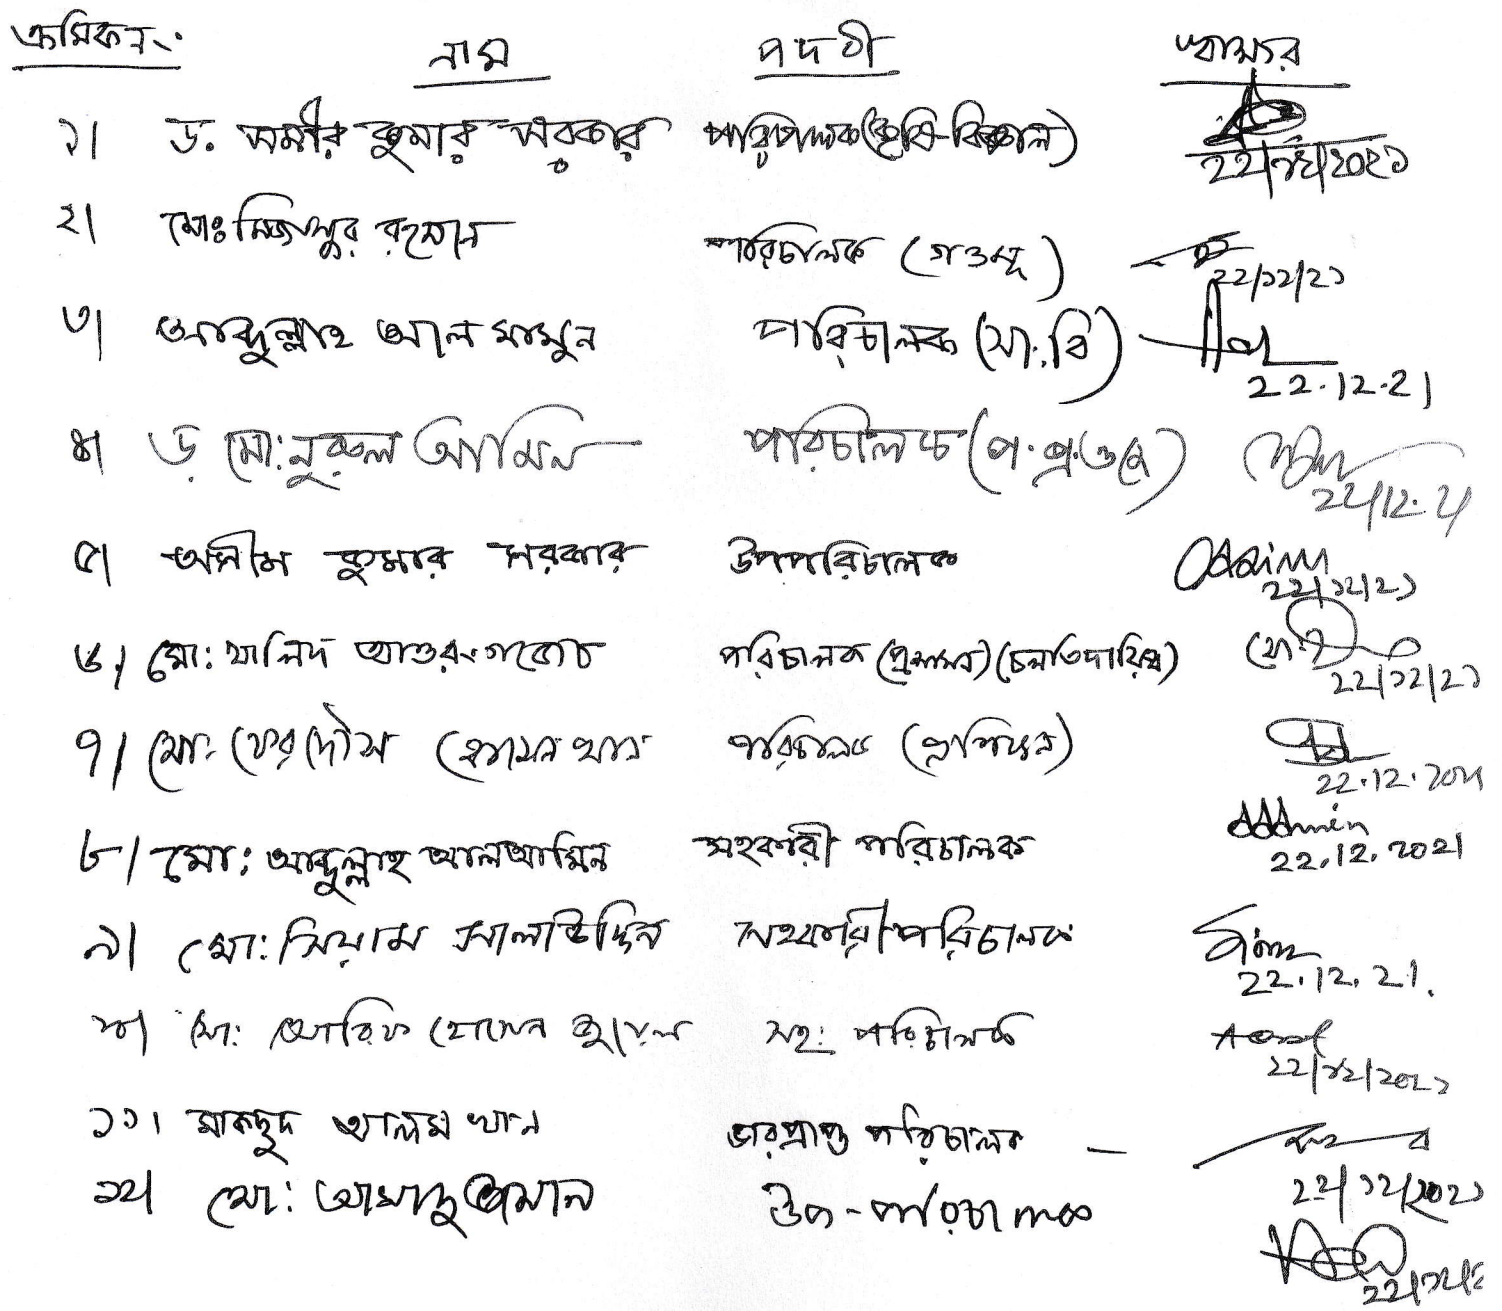 ক্রমিক নং নাম পদবী স্বাক্ষর
১। ড. সমীর কুমার সরকার পরিচালক (কৃষি-বিজ্ঞান)
22/১২/২০২১
২। মোঃ মিজানুর রহমান পরিচালক (গওমূ)
22/১২/২১
৩। আব্দুল্লাহ আল মামুন পরিচালক (সা.বি)
22.12.21
৪। ড. মো: নুরুল আমিন পরিচালক
22/12.21
৫। অসীম কুমার সরকার উপপরিচালক
22/১২/২১
৬। মো: খালিদ আওরংগজেব পরিচালক (প্রশাসন) (চলতি দায়িত্ব)
22/১২/২১
৭। মো: ফেরদৌস হোসেন খান পরিচালক
22.12.2021
৮। মো: আব্দুল্লাহ আল আমিন সহকারী পরিচালক
22.12.2021
৯। মো: সিয়াম সালাউদ্দিন সহকারী পরিচালক
22.12.21.
১০। মো: আরিফ হোসেন জুয়েল সহ: পরিচালক
22/১২/২০২১
১১। মাকছুদ আলম খান ভারপ্রাপ্ত পরিচালক –
22/১২/২০২১
১২। মো: আসাদুজ্জামান উপ-পরিচালক